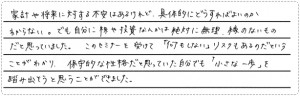 家計や将来に対する不安はあるけれど、具体的にどうすればよいのか
わからない。でも自分に株や投資なんかは絶対に無理、縁のないもの
だと思っていました。このセミナーを受けて「何もしない」リスクもあるのだという
ことがわかり、保守的な性格だと思っていた自分でも「小さな一歩」を
踏み出そうと思うことができました。